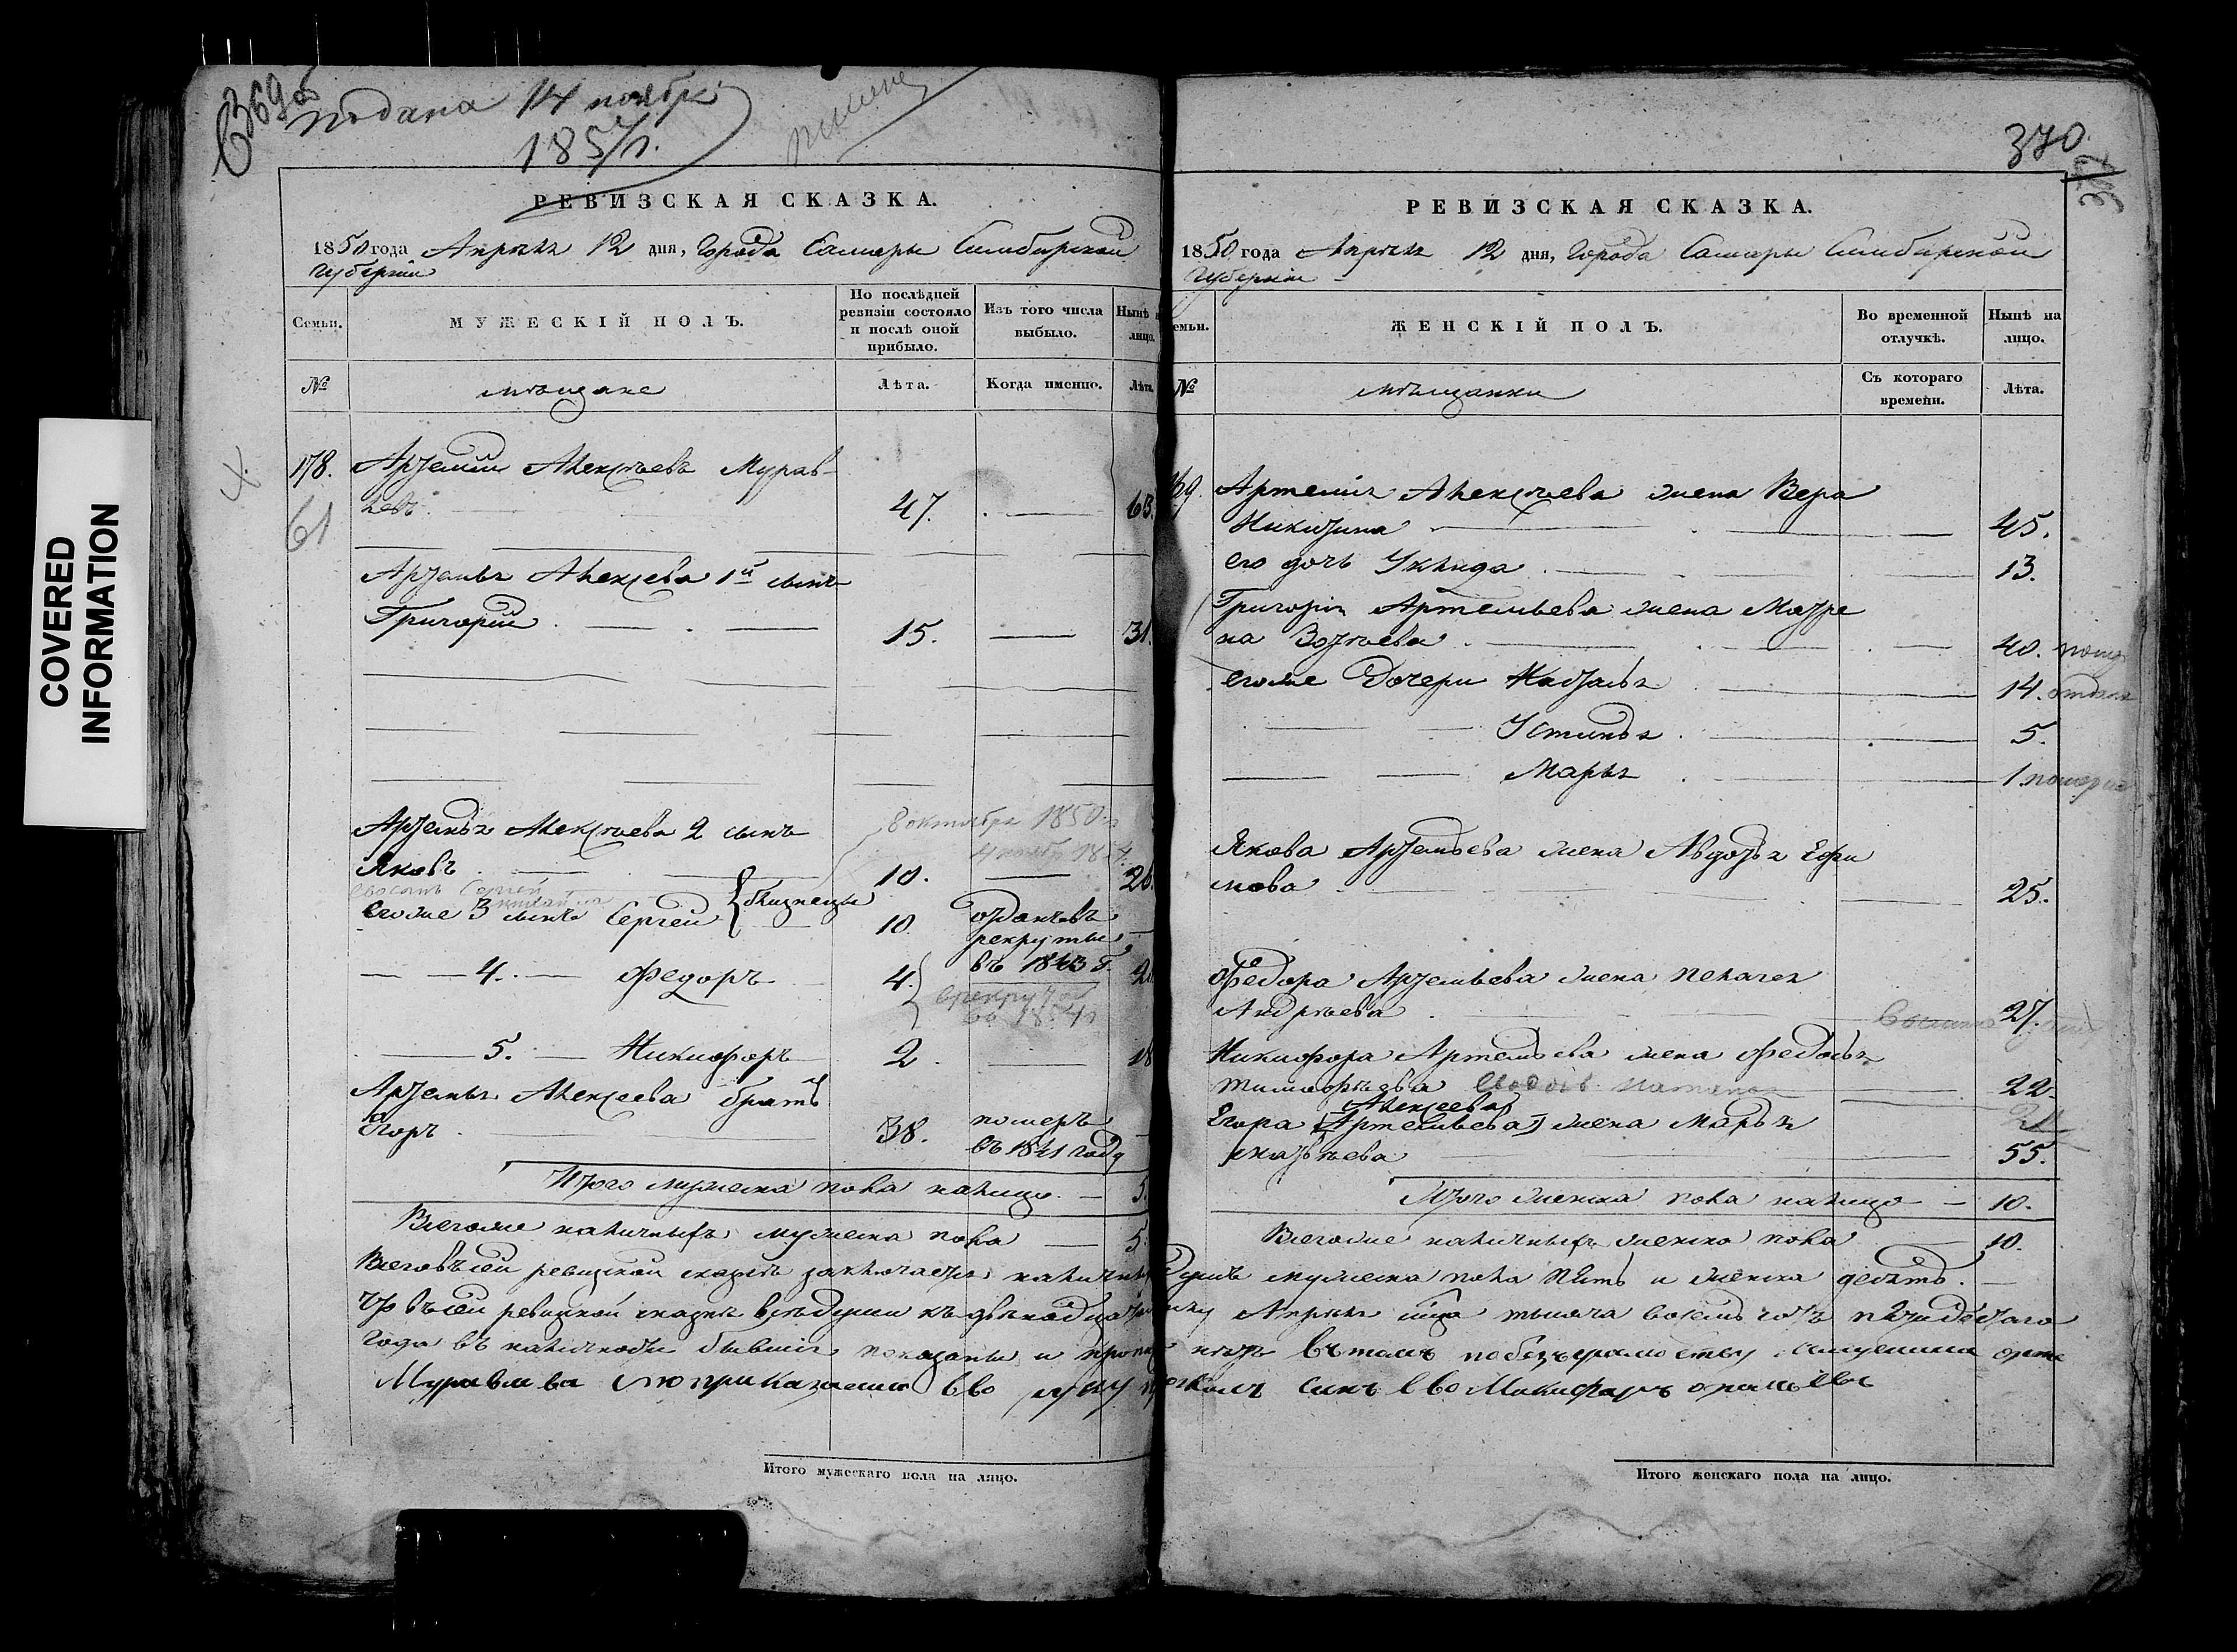 COVERED
INFORMATION
369 об
Подана 14 ноября
1857 г.
РЕВИЗСКАЯ СКАЗКА.
1850 года Апреля 12 дня, Города Самары Симбирской
Губернии
Семьи.
МУЖЕСКІЙ ПОЛЪ.
По послѣдней
ревизіи состояло
и послѣ оной
прибыло.
Изъ того числа
выбыло.
Нынѣ
лицо.
№
мѣщане
Лѣта.
Когда именно.
Лѣта.
178. Артемій Алексѣевъ Мурав-
левъ. 47. 63.
61
Артемья Алексеева 1й сынъ
Григорій 15. 31.
Артемья Алексѣева 2 сынъ
8 октября 1850
Яковъ 10. 26.
Сергей
егоже 3 сынъ Сергей близнецы 10. отданъ въ
рекруты
въ 1843 г.
4. Федоръ 4.
в рекруты
в 1854 г
5. Никифоръ 2 18
Артемья Алексеева братъ
Егоръ 38. померъ
въ 1841 году
Итого мужеска пола налицо 5.
Всегоже наличныхъ мужеска пола 5.
370.
РЕВИЗСКАЯ СКАЗКА.
1850 года Апреля 12 дня, Города Самары Симбирской
Губерніи
емьи.
ЖЕНСКІЙ ПОЛЪ.
Во временной
отлучкѣ.
Нынѣ на
лицо.
№
мѣщанки
Съ котораго
времени.
Лѣта.
Артемія Алексѣева жена Вера
Никитина 45.
его дочь Уклида 13.
Григорія Артемьева жена Матре
на Зотѣева 40.
егоже Дочери Наталья 14.
Устинья 5.
Марья 1 померла
Якова Артемьева жена Авдотья Ефи
мова 25.
Федора Артемьева жена Пелагея
Андрѣева 27.
Никифора Артемьева жена Федосья
Тимофѣева 22
Алексеева
Егора Артемьева жена Марья
55.
Итого женска пола налицо 10.
Всегоже наличныхъ женска пола 10.
Всего въ сей ревизской сказкѣ заключается наличныхъ душъ мужеска пола пять и женска десять.
Что въ сей ревизской сказкѣ всѣ души къ двѣнадцатому Апреля сего тысяча восемь сотъ пятидесятаго
года въ наличности бывшія показаны и
Муравлева по приказанию ево сынъ ево Микифаръ
Итого мужескаго пола на лицо.
Итого женскаго пола на лицо.